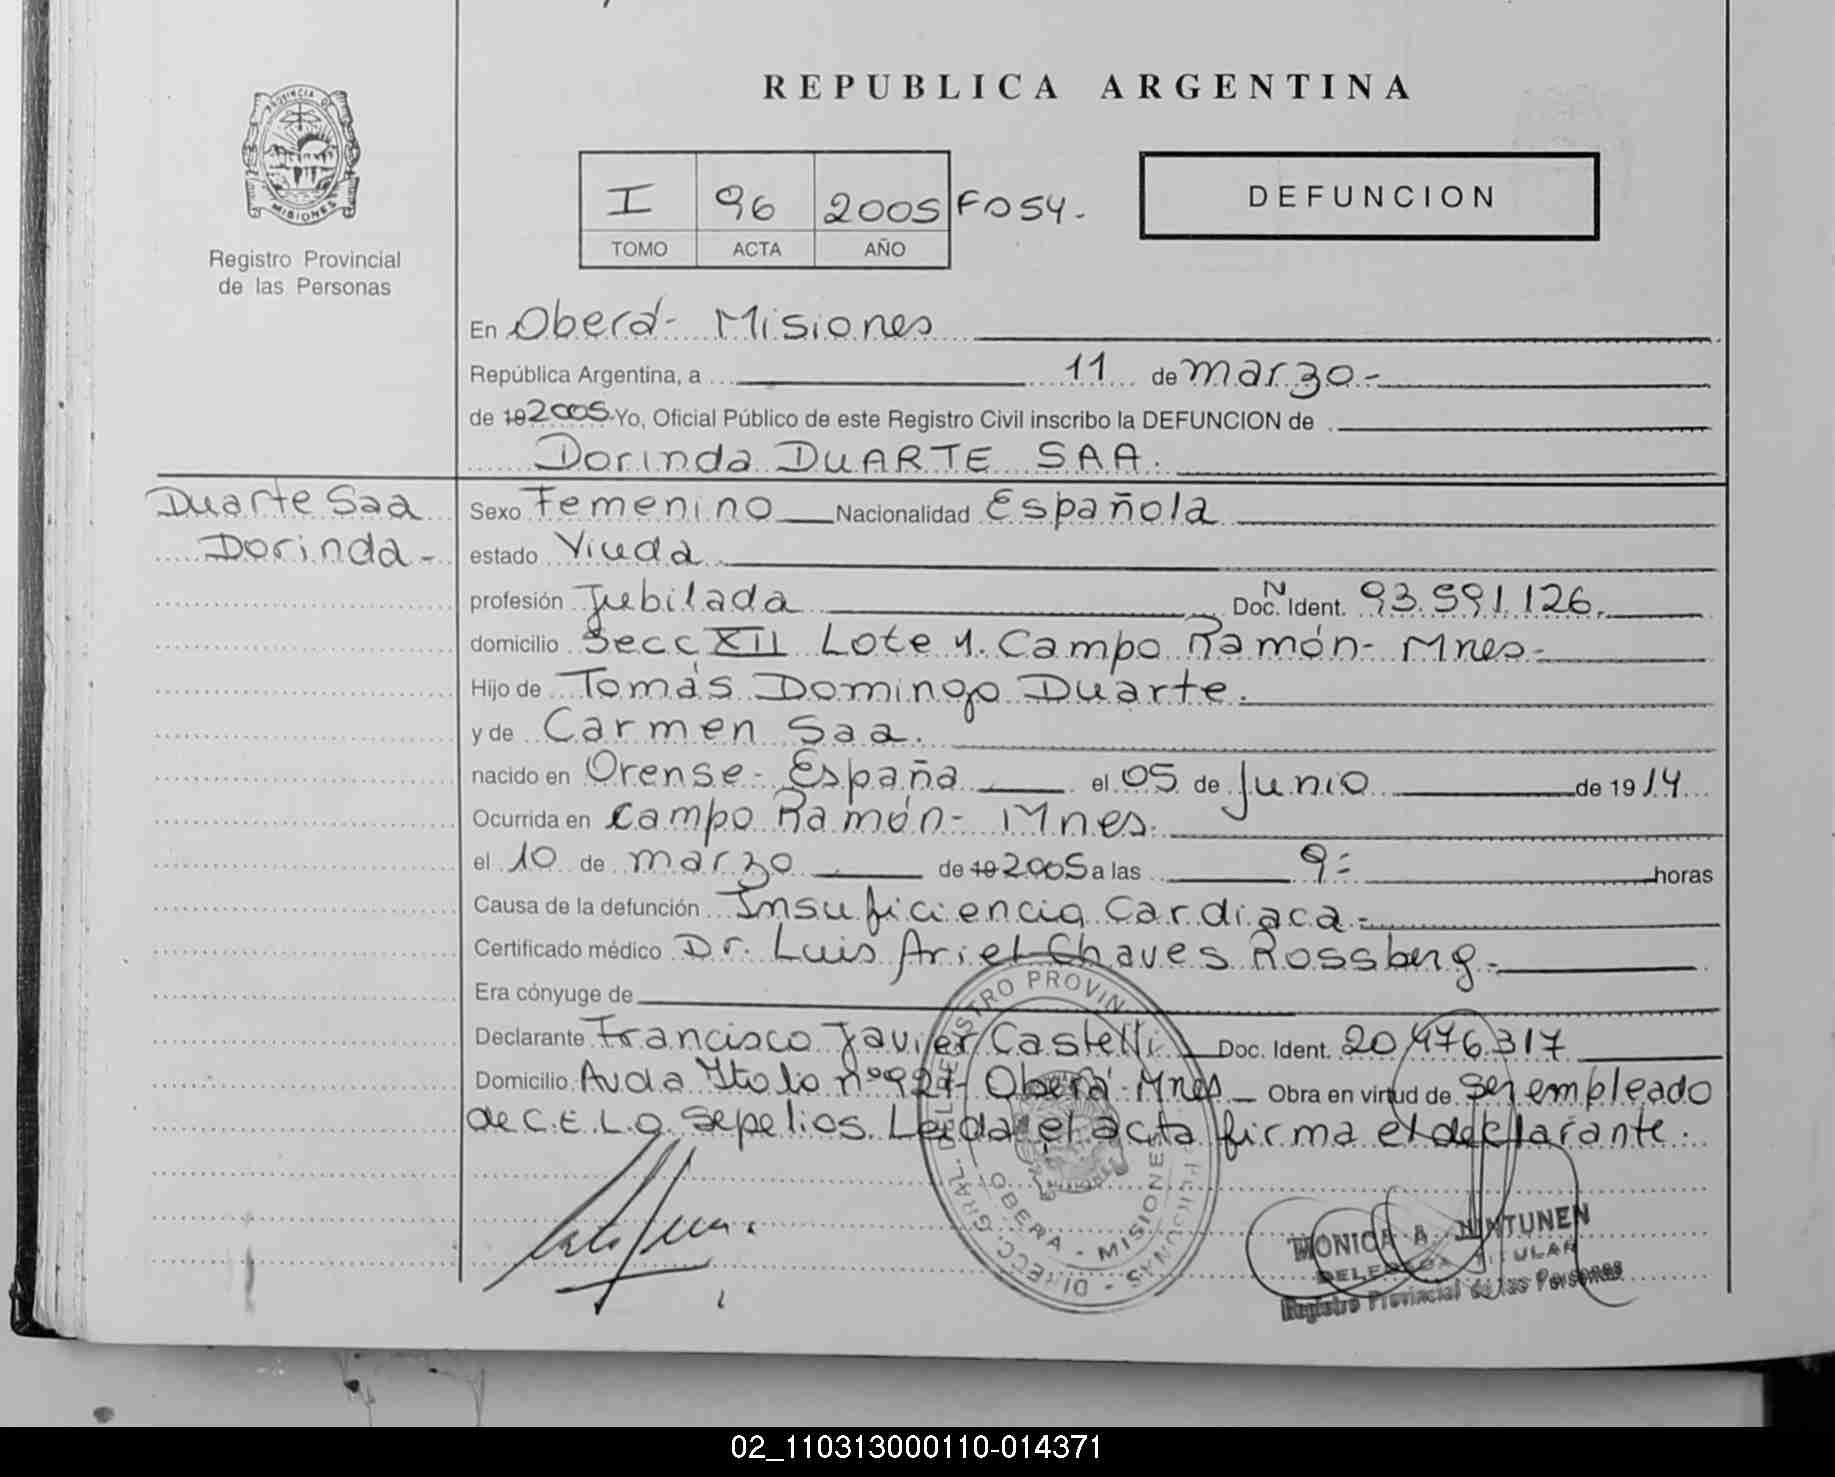 REPUBLICA ARGENTINA
PROVINCIA DE
MISIONES
Registro Provincial
de las Personas
I 96 2005 Fº 54.
TOMO ACTA AÑO
DEFUNCION
En Oberá- Misiones
República Argentina, a 11 de marzo-
de 19 2005 Yo, Oficial Público de este Registro Civil inscribo la DEFUNCION de
Dorinda DUARTE SAA.
Duarte Saa
Dorinda-
Sexo Femenino Nacionalidad Española
estado Viuda
profesión Jubilada Doc. N Ident. 93.591.126.
domicilio Secc XII Lote 1. Campo Ramón- Mnes-
Hijo de Tomás Domingo Duarte.
y de Carmen Saa.
nacido en Orense- España el 05 de Junio de 1914
Ocurrida en Campo Ramón- Mnes.
el 10 de marzo de 19 2005 a las 9- horas
Causa de la defunción Insuficiencia Cardiaca-
Certificado médico Dr. Luis Ariel Chaves Rossberg-
Era cónyuge de
Declarante Francisco Javier Castelli Doc. Ident. 20.476.317
Domicilio Avda Italo nº 927- Oberá- Mnes Obra en virtud de ser empleado
de C.E.L.O. Sepelios. Leida el acta firma el declarante.
DIRECC. GRAL. DEL REGISTRO PROVIN
OBERA - MISIONES
MONICA A. NINTUNEN
DELEGADA TITULAR
Registro Provincial de las Personas
02_110313000110-014371